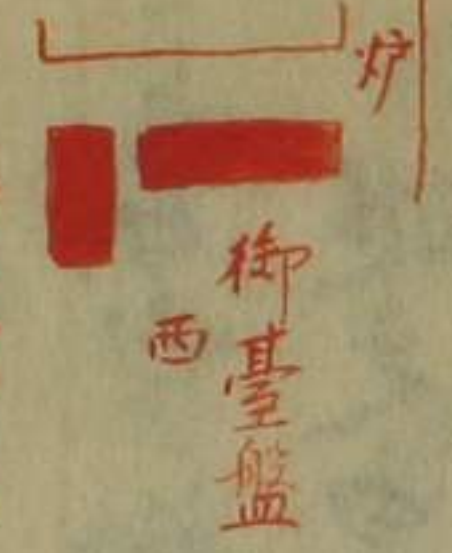 炉
御臺盤
西